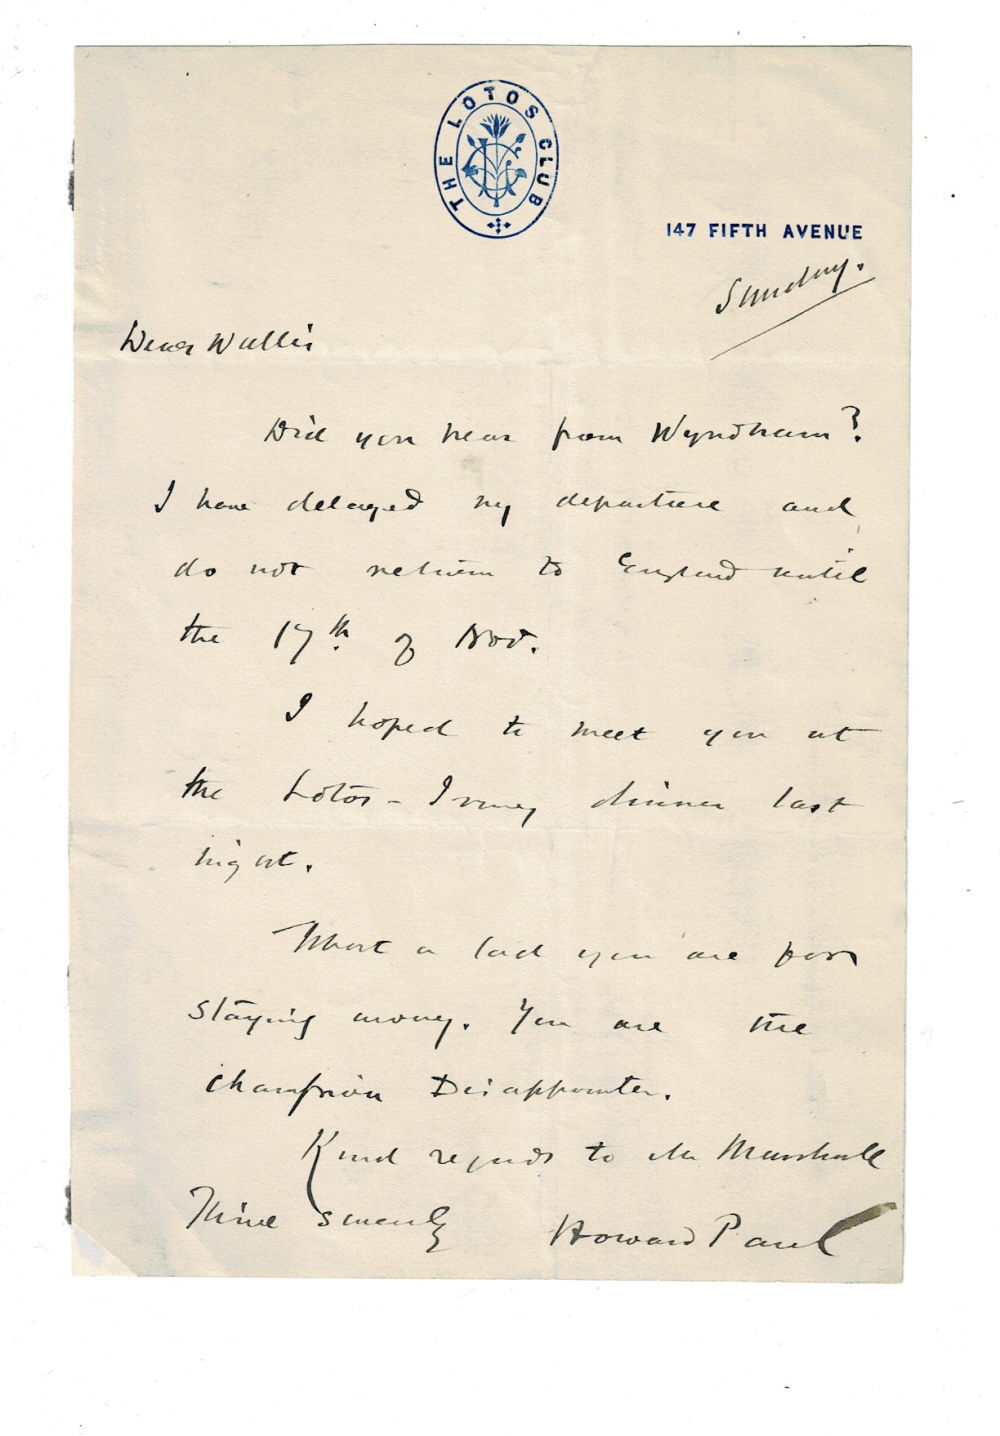 THE LOTOS CLUB
147 FIFTH AVENUE
Sunday.
Dear Wallis
Did you hear from Wyndham?
I have delayed my departure and
do not return to England until
the 17th. of Nov.
I hoped to meet you at
the Lotos - Irving dinner last
night.
What a lad you are for
staying away. You are the
champion Disappointer.
Kind regards to Mr Marshall
Thine sincerely Howard Paul